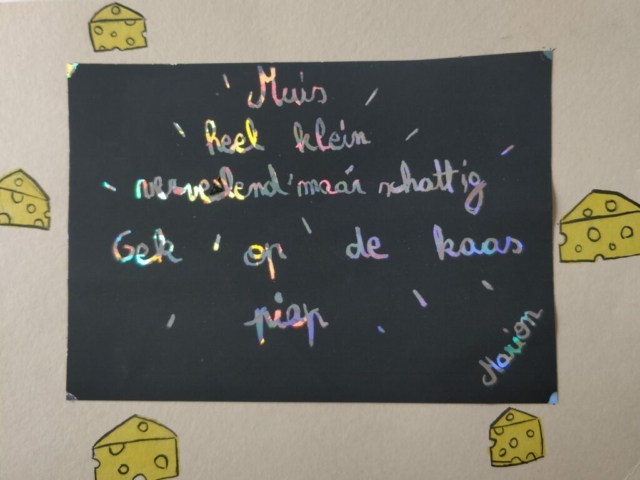 Muis
heel klein
vervelend maar schattig
Gek op de kaas
piep
Marion